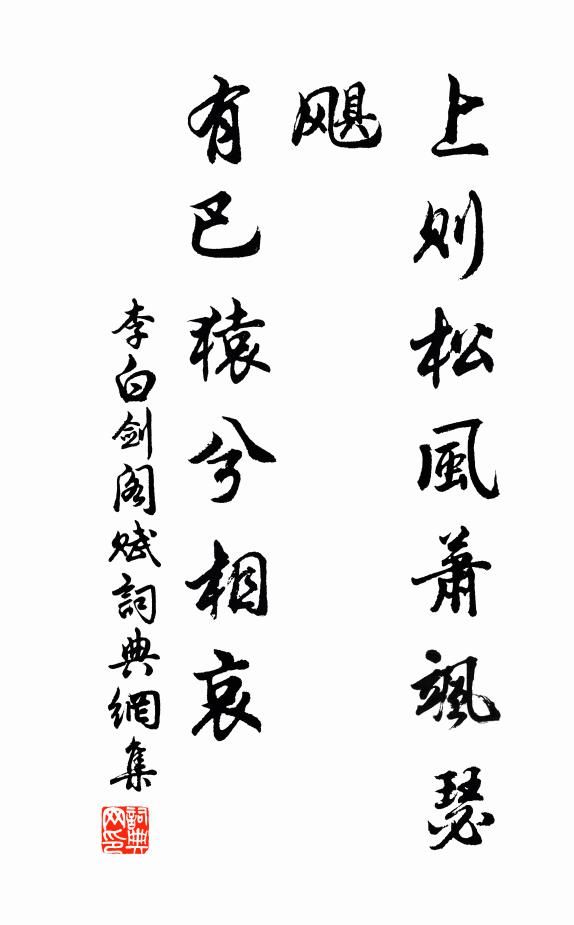 上則松風蕭颯瑟
颶
有巴猿兮相哀
李白劍閣賦詞典網集
詞典网印